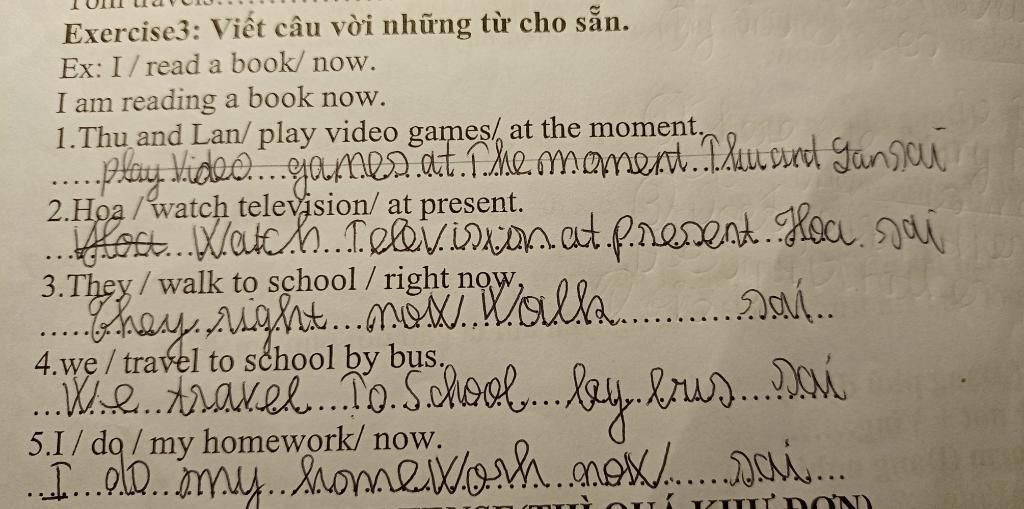 Tom travels
Exercise3: Viết câu vời những từ cho sẵn.
Ex: I / read a book/ now.
I am reading a book now.
1.Thu and Lan/ play video games/ at the moment.
play Video games at The moment Thu and Lan sai
2.Hoa / watch television/ at present.
Hoa Watch Television at present Hoa sai
3.They / walk to school / right now.
They right now Walk sai
4.we / travel to school by bus.
We travel To School by bus sai
5.I / do / my homework/ now.
I do my homework now sai
TENSE (THÌ QUÁ KHỨ ĐƠN)